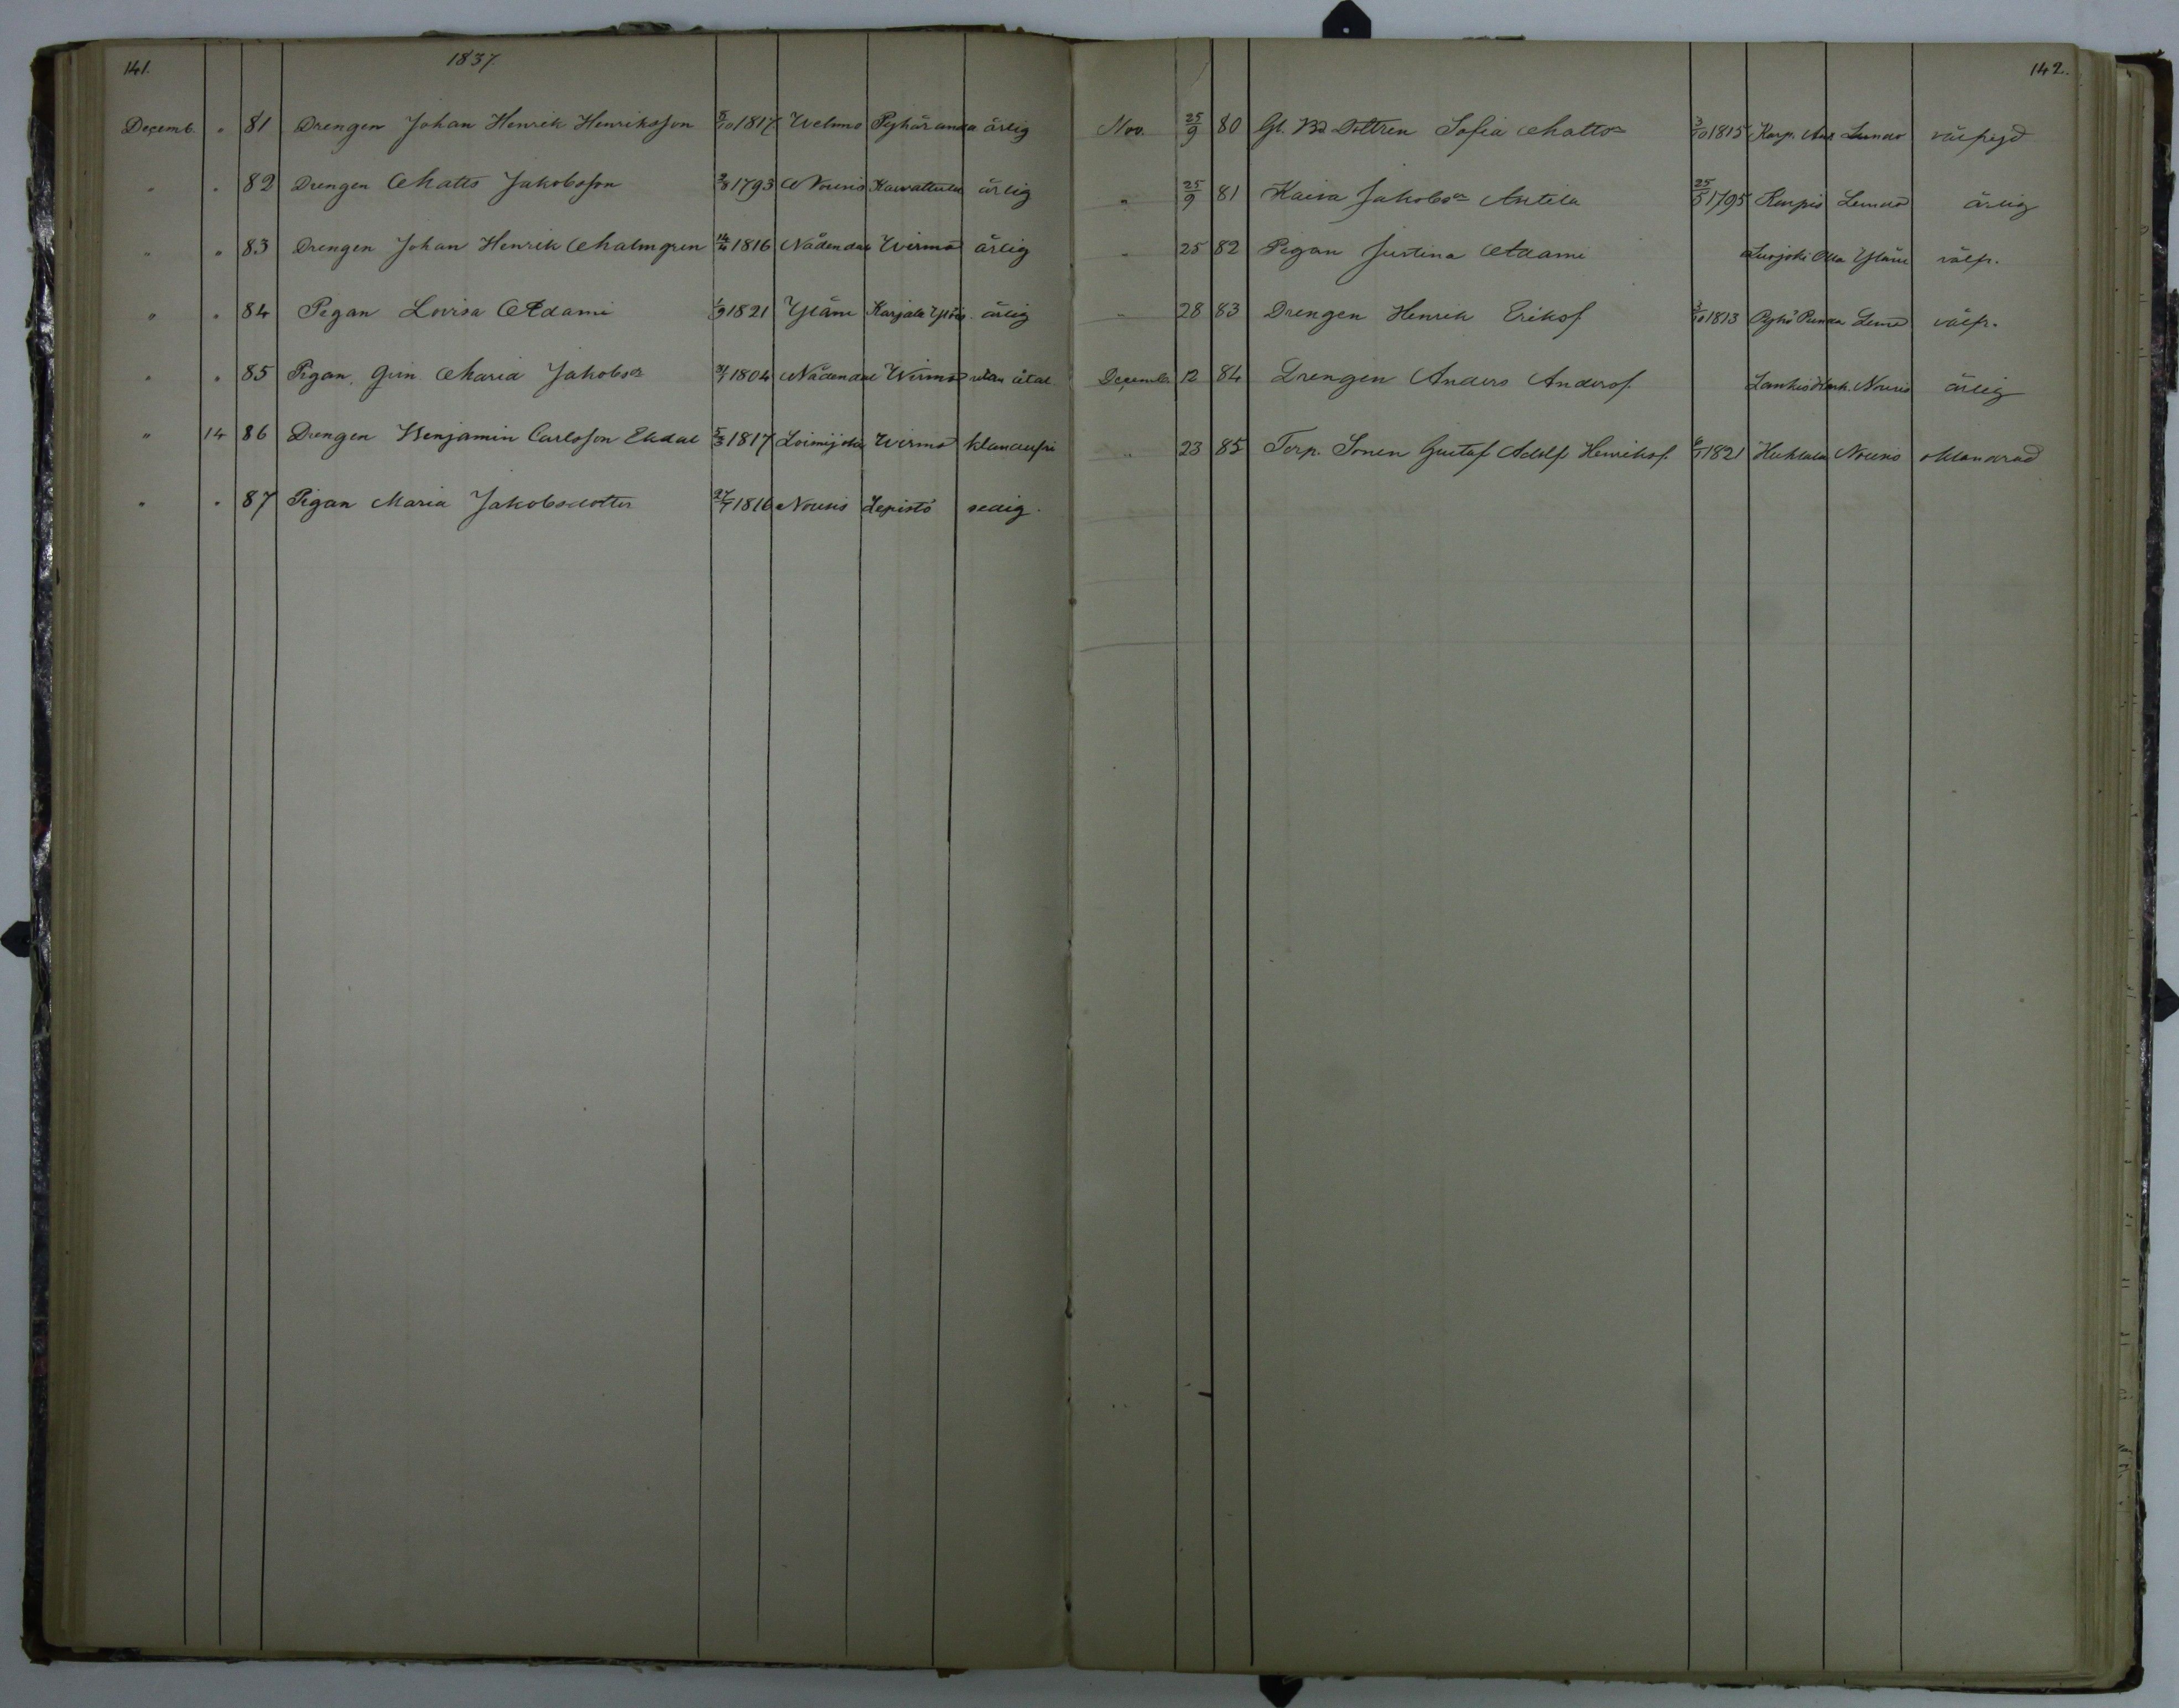 141.
1837.
Decemb. " 81 Drengen Johan Henrik Henriksson 5/10 1817 Wehmo Pyhäranda ärlig
" " 82 Drengen Matts Jakobsson 1793 Nousis ärlig
" " 83 Drengen Johan Henrik Malmgren 1816 Nådendal Wirmo ärlig
" " 84 Pigan Lovisa Adami 1/9 1821 Yläne Karjala ärlig
" " 85 Pigan Maria Jakobsdr 1804 Nådendal Wirmo utan åtal
" 14 86 Drengen Benjamin Carlsson Ekdal 5/3 1817 Loimijoki Wirmo klanderfri
" " 87 Pigan Maria Jakobsdotter 1816 Nousis Lepistö sedig.
142.
Nov. 25/9 80 Dottren Sofia Mattsdr 3/10 1815 Karp. Lemo välfrejd
" 25/9 81 Kaisa Jakobsdr Antila 25/5 1795 Karpis Lemo ärlig
" 25 82 Pigan Justina Adami Yläne välfr.
" 28 83 Drengen Henrik Eriksf 3/10 1813 Lemo välfr.
Decemb. 12 84 Drengen Anders Andersf. Nousis ärlig
" 23 85 Torp. Sonen Gustaf Adolf Henriksf. 1821 Huhtala Nousis oklandrad